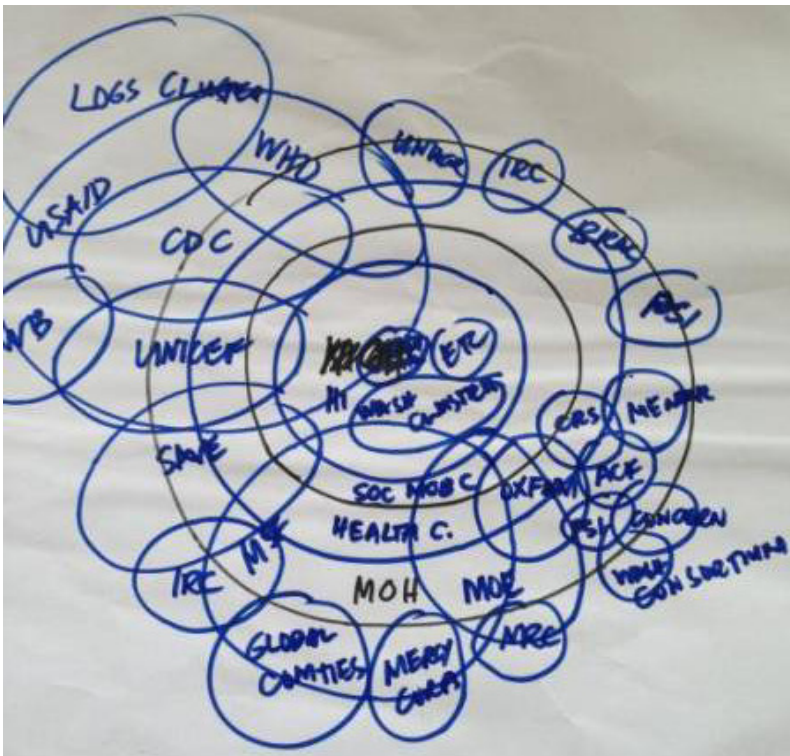 LOGS CLUSTER
WHO
UNHCR
IRC
USAID
CDC
BRAC
PSI
WB
UNICEF
ETC
HI
WASH
CLUSTER
CRS
MENTOR
SAVE
SOC MOB C.
OXFAM
ACF
HEALTH C.
PSI
CONCERN
IRC
MOH
MOE
WASH
CONSORTIUM
GLOBAL
COMTIES
MERCY
CORPS
NRC